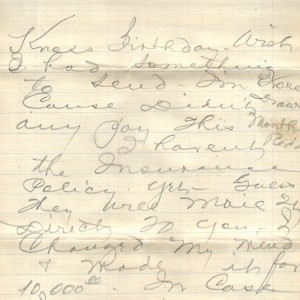 Kness Birthday. Wish
I had something
to send. I'm Broke
Cause Didn't Draw
any pay This Month
I Havent
the Insurance
Policy yet. Guess
They will Mail It
Direct To You. I
Changed My Mind
+ Made it for
10,000.00 - In Case